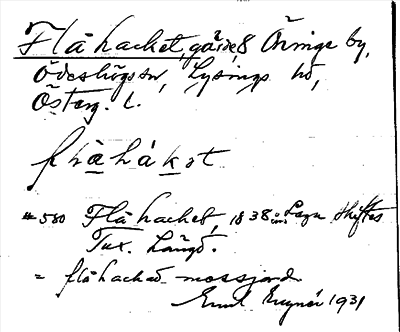 Flåhacket, gärde, 8 Öninge by,
Ödeshögs sn, Lysings hd,
Österg. l.
flåhakət
#580 Flåhacket, 1838 Laga skiftes
Tax. Längd.
= flåhackad mossjord
Emil 1931